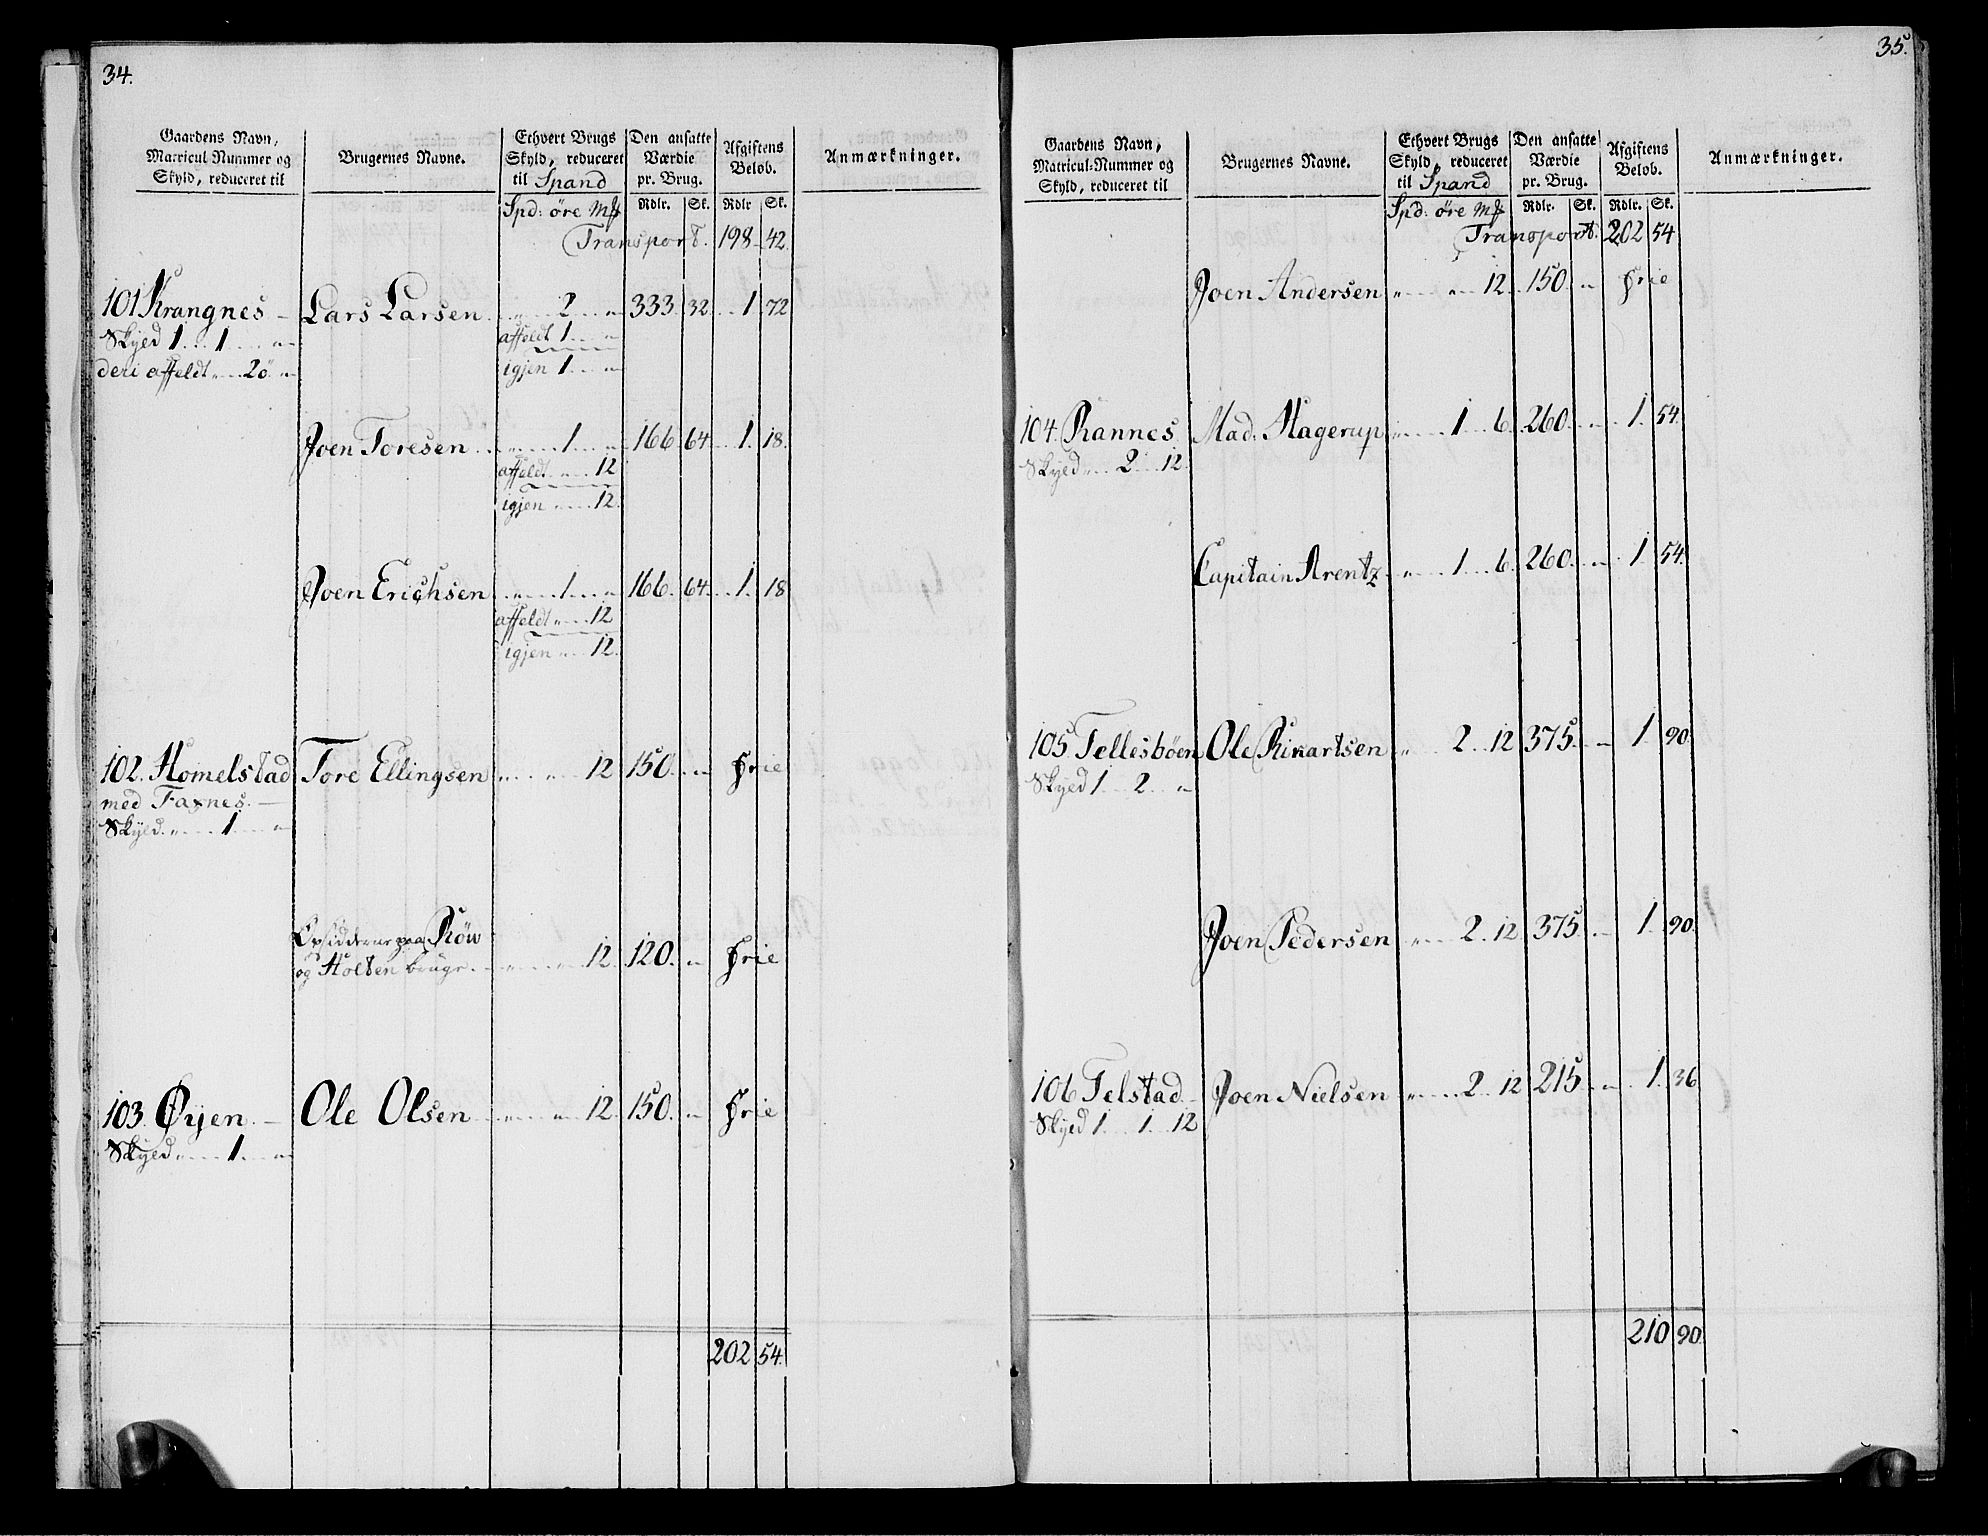 34.
Gaardens Navn, Matricul Nummer og Skyld, reduceret til
Brugernes Navne.
Ethvert Brugs Skyld, reduceret til Spand
Den ansatte Værdie pr. Brug.
Afgiftens Beløb.
Anmærkninger.
Spd: øre Mk
Rdlr. Sk. Rdlr Sk.
Transport. 198 42.
101 Krangnes Lars Larsen 2 333 32 1 72
Skyld 1 1 affeldt 1
deri affeldt 2ö igjen 1
Joen Toresen 1 166 64 1 18.
affeldt 12
igjen 12.
Joen Erichsen 1 166 64 1 18
affeldt 12
igjen 12.
102. Homelstad Tore Ellingsen 12 150 frie
med Faxnes.
Skyld 1
Opsidderne paa Röw
og Holten bruge 12. 120. frie
103. Øyen Ole Olsen 12. 150. frie
Skyld 1
202 54.
35.
Gaardens Navn, Matricul-Nummer og Skyld, reduceret til
Brugernes Navne.
Ethvert Brugs Skyld, reduceret til Spand
Den ansatte Værdie pr. Brug.
Afgiftens Beløb.
Anmærkninger.
Spd: øre Mk
Rdlr. Sk. Rdlr. Sk.
Transport. 202 54
Joen Andersen 12 150 frie
104. Rannes Mad. Hagerup 1 6. 260 1 54.
Skyld 2 12.
Capitain Arentz 1 6. 260 1 54.
105 Tellesböen Ole Rikartsen 2 12 375 1 90
Skyld 1 2
Joen Pedersen 2. 12 375 1 90.
106 Telstad Joen Nielsen 2 12 215 1. 36.
Skyld 1 1 12
210 90.